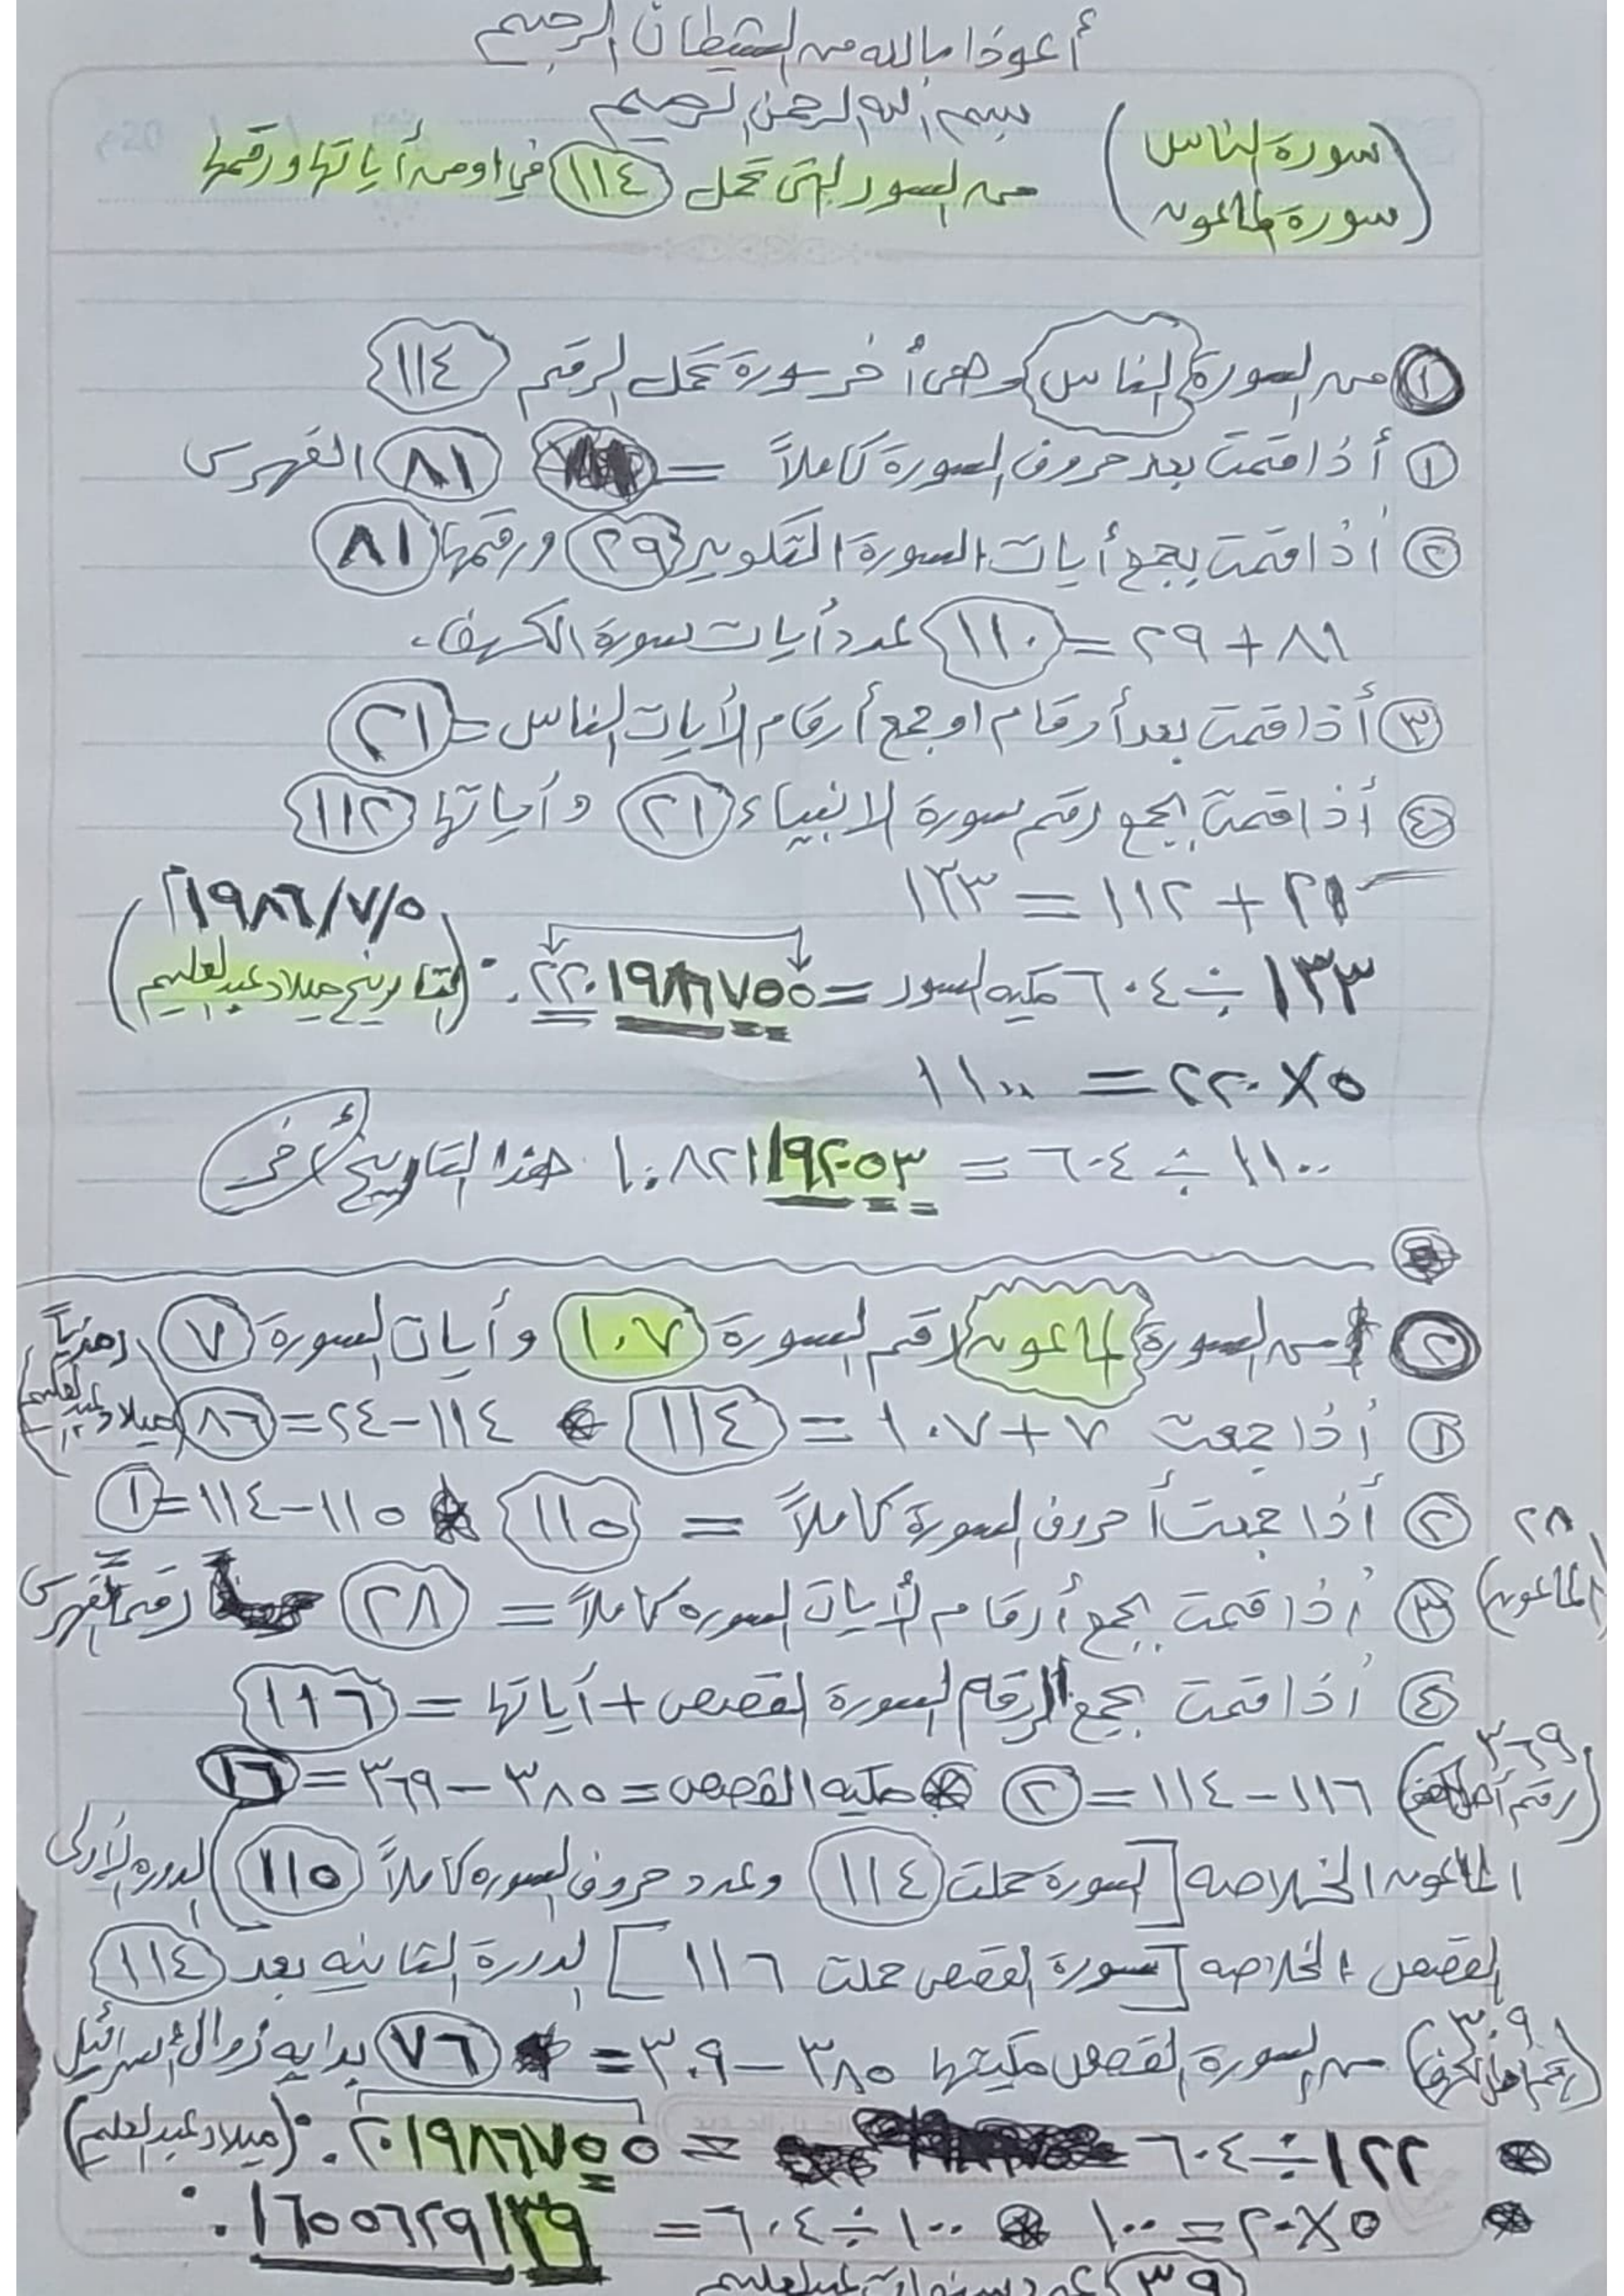 أعوذا بالله من الشيطان الرجيم
بسم الله الرحمن الرحيم
(سورة الناس
سورة الماعون)
من السور التي تحمل ١١٤ في اومن أياتها ورقمها
① من السورة الناس وهي أخر سورة تحمل الرقم ١١٤
① أذا قمت بعد حروف السورة كاملاً = ٨١ الفهرس
② أذا قمت بجمع أيات السورة التكوير ٢٩ ورقمها ٨١
٨١ + ٢٩ = ١١٠ عدد أيات سورة الكهف.
③ أذا قمت بعد أرقام او جمع أرقام الأيات الناس = ٢١
④ أذا قمت بجمع رقم سورة الانبياء ٢١ و أياتها ١١٢
٢١ + ١١٢ = ١٣٣
١٩٨٦/٧/٥م
١٣٣ ÷ ٦٠٤ مكيه السور = ٢٢٠١٩٨٦٧٥٥.
(التاريخ ميلاد عبدالعليم)
٥ × ٢٢٠ = ١١٠٠
١١٠٠ ÷ ٦٠٤ = ١.٨٢١١٩٢٠٥٣ هذا التاريخ أخر
② من السورة الماعون رقم السورة ١٠٧ و أيات السورة ٧
① أذا جمعت ٧ + ١٠٧ = ١١٤ * ١١٤ - ٢٤ = ٨٦ (ميلاد عبدالعليم)
② أذا جمعت أحروف السورة كاملاً = ١١٥ * ١١٥ - ١١٤ = ١
٢٨ (الماعون)
③ أذا قمت بجمع أرقام لأيات السوره كاملاً = ٢٨ رقم الفهرس
④ أذا قمت بجمع الرقم السورة القصص + أياتها = ١١٦
٣٦٩
١١٦ - ١١٤ = ② * مكيه القصص = ٣٨٥ - ٣٦٩ = ١٦
الماعون الخلاصه [السورة حملت ١١٤ وعدد حروف السوره كاملاً ١١٥) الدوره الأولى
القصص الخلاصه [سورة القصص حملت ١١٦] الدورة الثانيه بعد ١١٤
٣٠٩
من السورة القصص مكيتها ٣٨٥ - ٣٠٩ = ٧٦ بدايه زوال أسرائيل
* ١٢٢ ÷ ٦٠٤ = ٢٠١٩٨٦٧٥٥. (ميلاد عبدالعليم)
* ٥ × ٢٠ = ١٠٠ * ١٠٠ ÷ ٦٠٤ = ١٦٥٥٦٢٩١٣٩.
٣٩